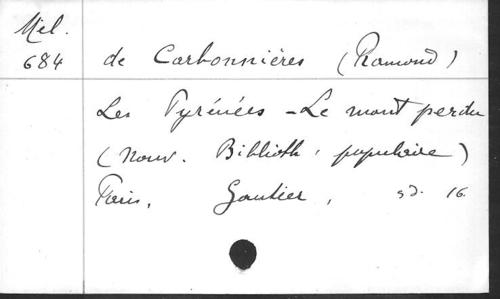 Mél.
684 de Carbonnières (Ramond)
Les Pyrénées - Le mont perdu
(Nouv. Biblioth. populaire)
Paris, Gautier, sd. 16.